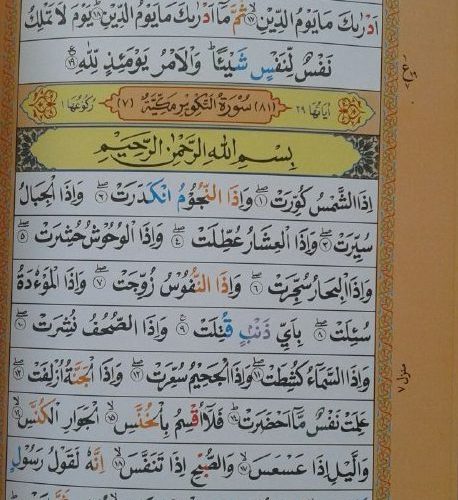 اَدْرٰىكَ مَا يَوْمُ الدِّيْنِ ۝۱۷ ثُمَّ مَاۤ اَدْرٰىكَ مَا يَوْمُ الدِّيْنِ ۝۱۸ يَوْمَ لَا تَمْلِكُ
نَفْسٌ لِّنَفْسٍ شَيْئًا ؕ وَالْاَمْرُ يَوْمَئِذٍ لِّلّٰهِ ۝۱۹
اٰيَاتُهَا ۲۹ (۸۱) سُوْرَةُ التَّكْوِيْرِ مَكِّيَّةٌ (۷) رُكُوْعُهَا ۱
بِسْمِ اللهِ الرَّحْمٰنِ الرَّحِيْمِ
اِذَا الشَّمْسُ كُوِّرَتْ ۝۱ وَاِذَا النُّجُوْمُ انْكَدَرَتْ ۝۲ وَاِذَا الْجِبَالُ
سُيِّرَتْ ۝۳ وَاِذَا الْعِشَارُ عُطِّلَتْ ۝۴ وَاِذَا الْوُحُوْشُ حُشِرَتْ ۝۵
وَاِذَا الْبِحَارُ سُجِّرَتْ ۝۶ وَاِذَا النُّفُوْسُ زُوِّجَتْ ۝۷ وَاِذَا الْمَوْءٗدَةُ
سُئِلَتْ ۝۸ بِاَيِّ ذَنْۢبٍ قُتِلَتْ ۝۹ وَاِذَا الصُّحُفُ نُشِرَتْ ۝۱۰
وَاِذَا السَّمَآءُ كُشِطَتْ ۝۱۱ وَاِذَا الْجَحِيْمُ سُعِّرَتْ ۝۱۲ وَاِذَا الْجَنَّةُ اُزْلِفَتْ ۝۱۳
عَلِمَتْ نَفْسٌ مَّاۤ اَحْضَرَتْ ۝۱۴ فَلَاۤ اُقْسِمُ بِالْخُنَّسِ ۝۱۵ الْجَوَارِ الْكُنَّسِ ۝۱۶
وَالَّيْلِ اِذَا عَسْعَسَ ۝۱۷ وَالصُّبْحِ اِذَا تَنَفَّسَ ۝۱۸ اِنَّهٗ لَقَوْلُ رَسُوْلٍ
منزل ۷